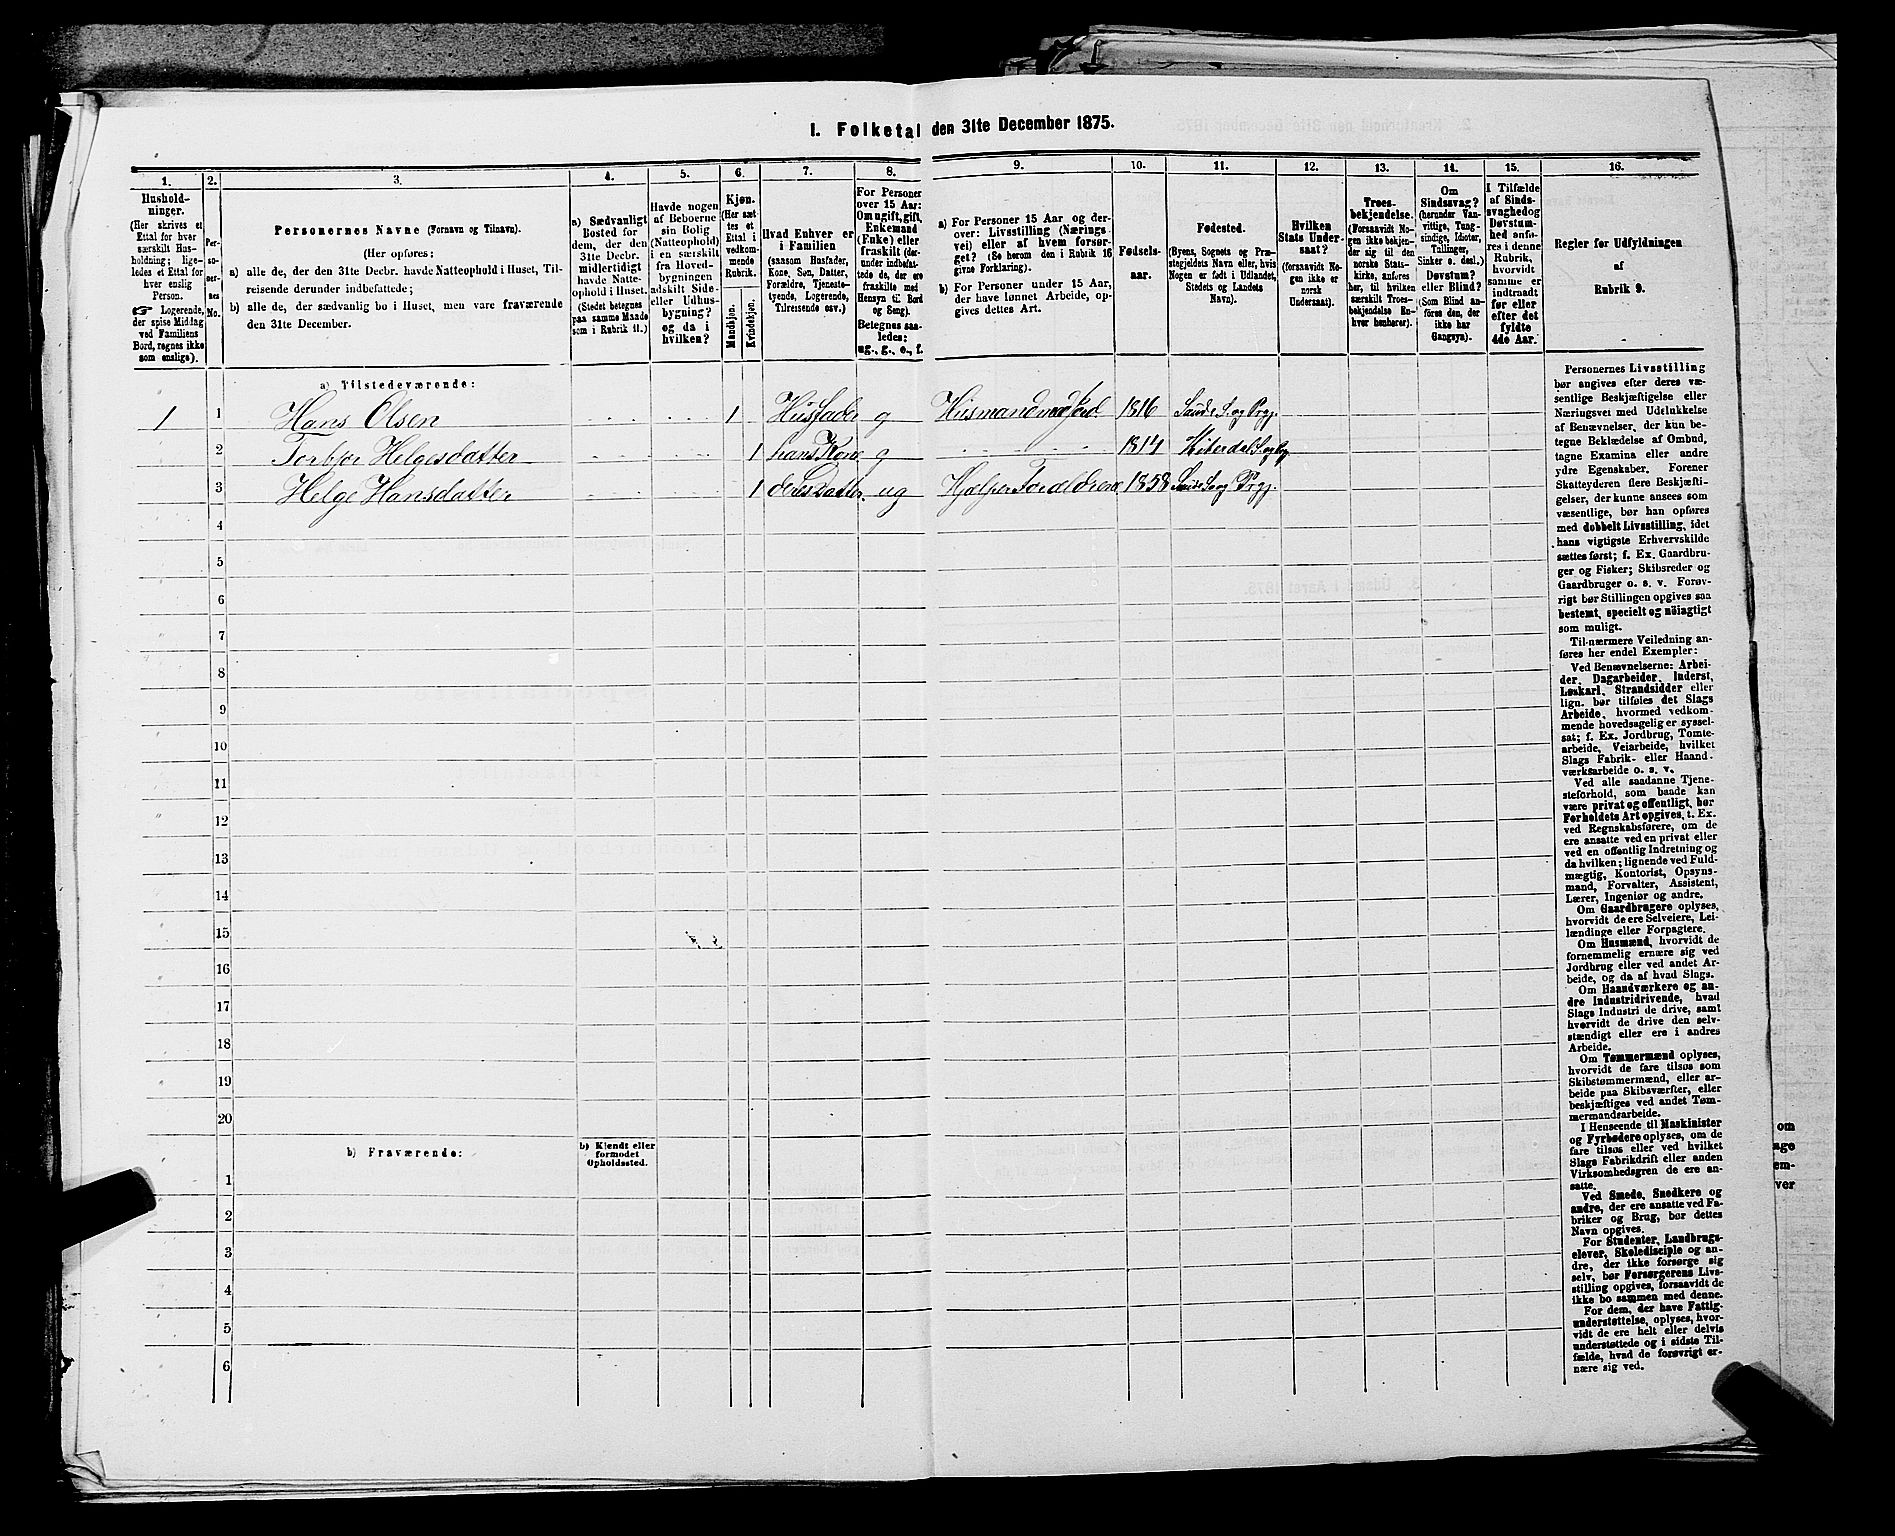 I. Folketal den 31te December 1875.
1. 2. 3. 4. 5. 6. 7. 8. 9. 10. 11. 12. 13. 14. 15. 16.
Hushold-
ninger.
(Her skrives et
Ettal for hver
særskilt Hus-
holdning; lige-
ledes et Ettal for
hver enslig
Person.
☞ Logerende,
der spise Middag
ved Familiens
Bord, regnes ikke
som enslige).
Per-
so-
ner-
nes
No.
Personernes Navne (Fornavn og Tilnavn).
(Her opføres:
a) alle de, der den 31te Decbr. havde Natteophold i Huset, Til-
reisende derunder indbefattede;
b) alle de, der sædvanlig bo i Huset, men vare fraværende
den 31te December.
a) Sædvanligt
Bosted for
dem, der den
31te Decbr.
midlertidigt
havde Natte-
ophold i Huset.
(Stedet betegnes
paa samme Maade
som i Rubrik 11.)
Havde nogen
af Beboerne
sin Bolig
(Natteophold)
i en særskilt
fra Hoved-
bygningen
adskilt Side-
eller Udhus-
bygning?
og da i
hvilken?
Kjøn.
(Her sæt-
tes et
Ettal i
vedkom-
mende
Rubrik.
Mandkjøn.
Kvindekjøn.
Hvad Enhver er
i Familien
(saasom Husfader,
Kone, Søn, Datter,
Forældre, Tjeneste-
tyende, Logerende,
Tilreisende osv.)
For Personer
over 15 Aar:
Om ugift, gift,
Enkemand
(Enke) eller
fraskilt (der-
under indbefat-
tede de, der ere
fraskilte med
Hensyn til Bord
og Seng).
Betegnes saa-
ledes:
ug., g., e., f.
a) For Personer 15 Aar og der-
over: Livsstilling (Nærings-
vei) eller af hvem forsør-
get? (Se herom den i Rubrik 16
givne Forklaring).
b) For Personer under 15 Aar,
der have lønnet Arbeide, op-
gives dettes Art.
Fødsels-
aar.
Fødested.
(Byens, Sognets og Præ-
stegjeldets Navn eller, hvis
Nogen er født i Udlandet,
Stedets og Landets
Navn).
Hvilken
Stats Under-
saat?
(forsaavidt No-
gen ikke er
norsk
Undersaat).
Troes-
bekjendelse.
(Forsaavidt No-
gen ikke bekjen-
der sig til den
norske Stats-
kirke, anføres
her, til hvilken
særskilt Troes-
bekjendelse En-
hver henhører).
Om
Sindssvag?
(herunder Van-
vittige, Tung-
sindige, Idioter,
Tullinger,
Sinker o. desl.)
Døvstum?
eller Blind?
(Som Blind an-
føres den, der
ikke har
Gangsyn).
I Tilfælde
af Sinds-
svaghed og
Døvstum-
hed anfø-
res i denne
Rubrik,
hvorvidt
samme er
indtraadt
før eller
efter det
fyldte
4de Aar.
Regler for Udfyldningen
af
Rubrik 9.
a) Tilstedeværende:
1 1 Hans Olsen 1 Husfader g Husmand med Jord 1816 Saude S. og Prgj.
2 Torbjør Helgesdatter 1 hans Kone g Hiterdal S. og Prg
3 Helge Hansdatter 1 deres Datter ug Hjælper Forældrene 1858 Saude S og Prgj.
4
5
6
7
8
9
10
11
12
13
14
15
16
17
18
19
20
b) Fraværende:
b) Kjendt eller
formodet
Opholdssted.
1
2
3
4
5
6
Personernes Livsstilling
bør angives efter deres væ-
sentlige Beskjæftigelse eller
Næringsvei med Udelukkelse
af Benævnelser, der kun be-
tegne Beklædelse af Ombud,
tagne Examina eller andre
ydre Egenskaber. Forener
Skatteyderen flere Beskjæfti-
gelser, der kunne ansees som
væsentlige, bør han opføres
med dobbelt Livsstilling, idet
hans vigtigste Erhvervskilde
sættes først; f. Ex. Gaardbru-
ger og Fisker; Skibsreder og
Gaardbruger o. s. v. Forøv-
rigt bør Stillingen opgives saa
bestemt, specielt og nøiagtigt
som muligt.
Til nærmere Veiledning an-
føres her endel Exempler:
Ved Benævnelserne: Arbei-
der, Dagarbeider, Inderst,
Løskarl, Strandsidder eller
lign. bør tilføies det Slags
Arbeide, hvormed vedkom-
mende hovedsagelig er syssel-
sat; f. Ex. Jordbrug, Tomte-
arbeide, Veiarbeide, hvilket
Slags Fabrik- eller Haand-
værksarbeide o. s. v.
Ved alle saadanne Tjene-
steforhold, som baade kan
være privat og offentligt, bør
Forholdets Art opgives, t. Ex.
ved Regnskabsførere, om de
ere ansatte ved en privat eller
ved en offentlig Indretning og
da hvilken; lignende ved Fuld-
mægtig, Kontorist, Opsyns-
mand, Forvalter, Assistent,
Lærer, Ingeniør og andre.
Om Gaardbrugere oplyses,
hvorvidt de ere Selveiere, Lei-
lændinge eller Forpagtere.
Om Husmænd, hvorvidt de
fornemmelig ernære sig ved
Jordbrug eller ved andet Ar-
beide, og da af hvad Slags.
Om Haandværkere og an-
dre Industridrivende, hvad
Slags Industri de drive, samt
hvorvidt de drive den selv-
stændigt eller ere i andres
Arbeide.
Om Tømmermænd oplyses,
hvorvidt de fare tilsøs som
Skibstømmermænd, eller ar-
beide paa Skibsværfter, eller
beskjæftiges ved andet Tøm-
mermandsarbeide.
I Henseende til Maskinister
og Fyrbødere oplyses, om de
fare tilsøs eller ved hvilket
Slags Fabrikdrift eller anden
Virksomhedsgren de ere an-
satte.
Ved Smede, Snedkere og
andre, der ere ansatte ved Fa-
briker og Brug, bør dettes
Navn opgives.
For Studenter, Landbrugs-
elever, Skoledisciple og an-
dre, der ikke forsørge sig
selv, bør Forsørgerens Livs-
stilling opgives, forsaavidt de
ikke bo sammen med denne.
For dem, der have Fattig-
understøttelse, oplyses, hvor-
vidt de ere helt eller delvis
understøttede og i sidste Til-
fælde, hvad de forøvrigt er-
nære sig ved.